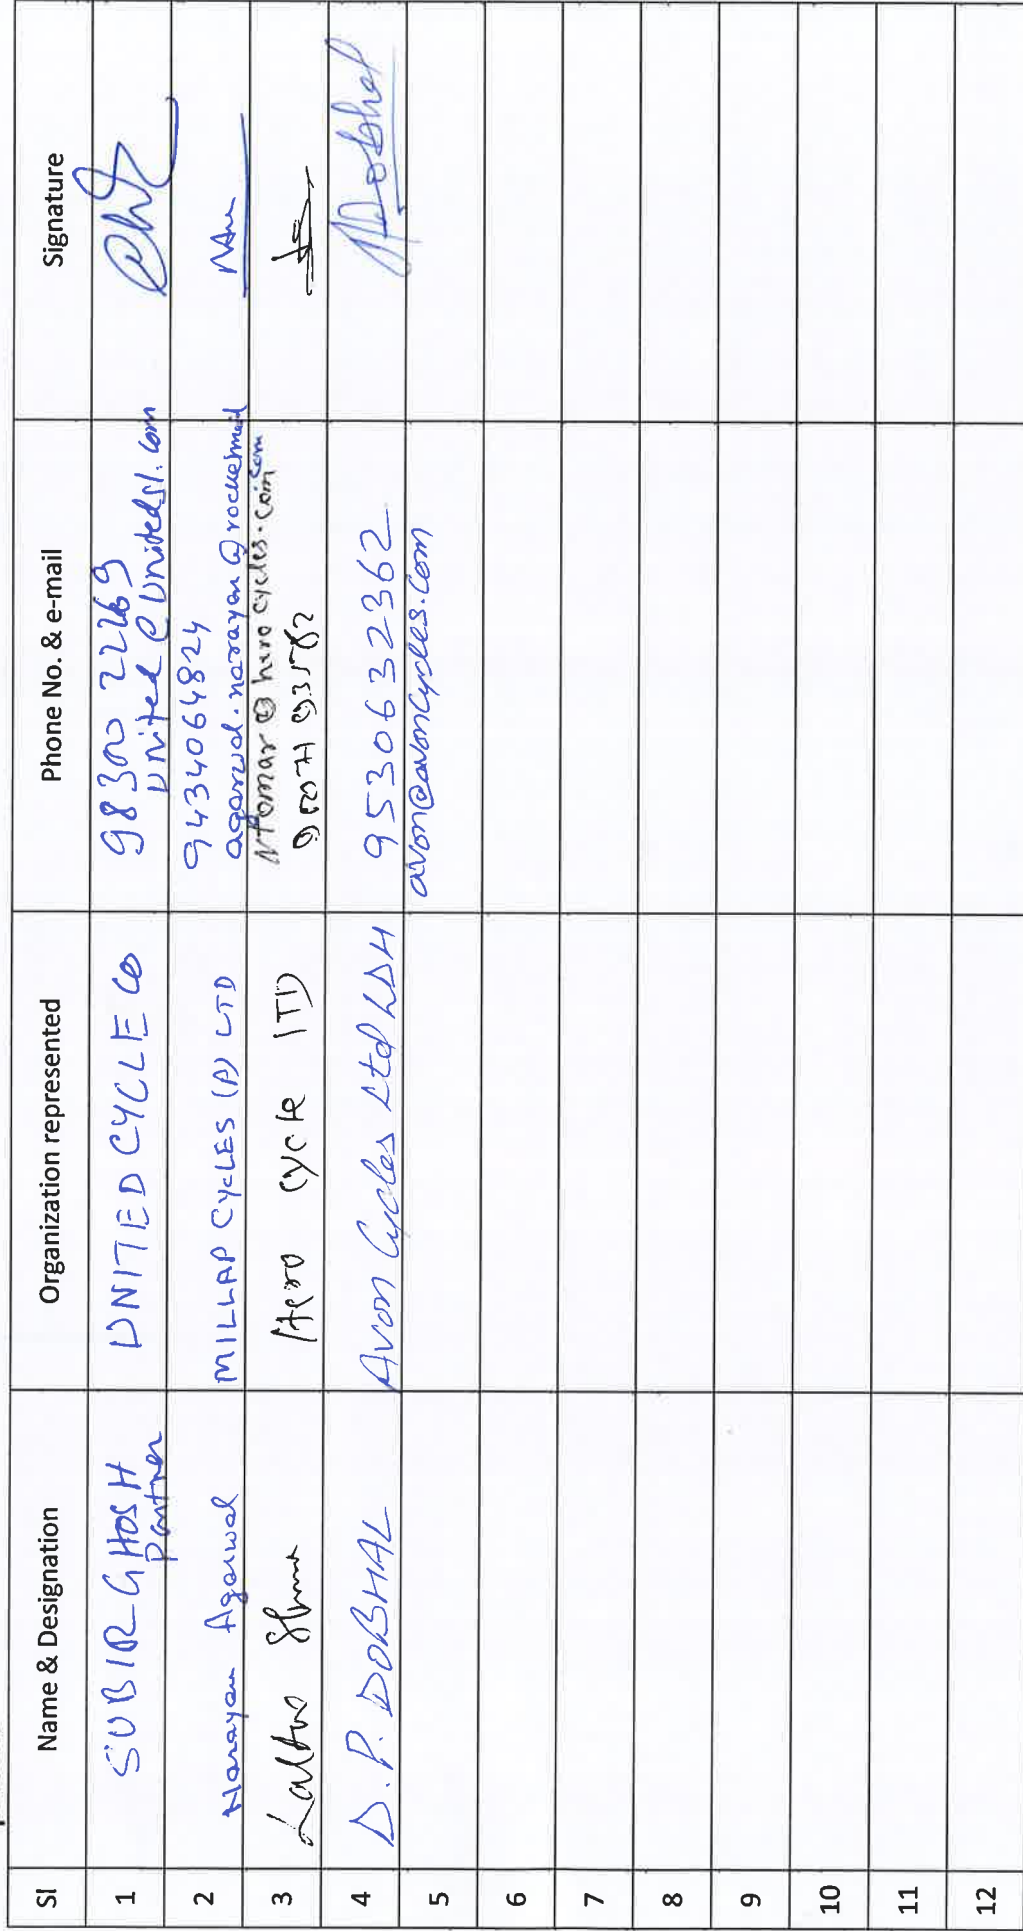 Sl Name & Designation Organization represented Phone No. & e-mail Signature
1 SUBIR GHOSH UNITED CYCLE Co 98300 22269
Partner United @ Unitedsl.com
2 Narayan Agarwal MILLAP CYCLES (P) LTD 9434064824
agarwal.narayan@rocketmail
.com
3 Laltu Hero Cycle LTD ntomar@herocycles.com
4 D.P. DOBHAL Avon Cycles Ltd LDH 9530632362 Dobhal
avon@avoncycles.com
5
6
7
8
9
10
11
12